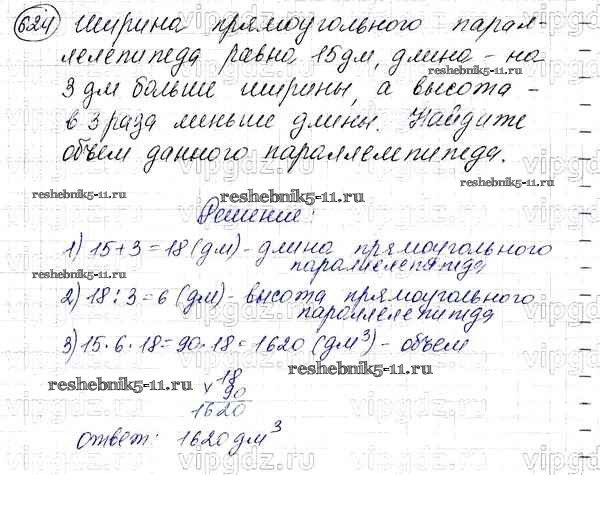 624 Ширина прямоугольного парал-
лелепипеда равна 15 дм, длина - на
reshebnik5-11.ru
3 дм больше ширины, а высота -
в 3 раза меньше длины. Найдите
объем данного параллелепипеда.
reshebnik5-11.ru
reshebnik5-11.ru reshebnik5-11.ru
Решение:
1) 15 + 3 = 18 (дм) - длина прямоугольного
параллелепипеда
reshebnik5-11.ru reshebnik5-11.ru
2) 18 : 3 = 6 (дм) - высота прямоугольного
параллелепипеда
vipgdz.ru vipgdz.ru vipgdz.ru
3) 15 · 6 · 18 = 90 · 18 = 1620 (дм³) - объем
reshebnik5-11.ru
18
reshebnik5-11.ru
× 90
1620
ответ: 1620 дм³
vipgdz.ru vipgdz.ru vipgdz.ru vipgdz.ru